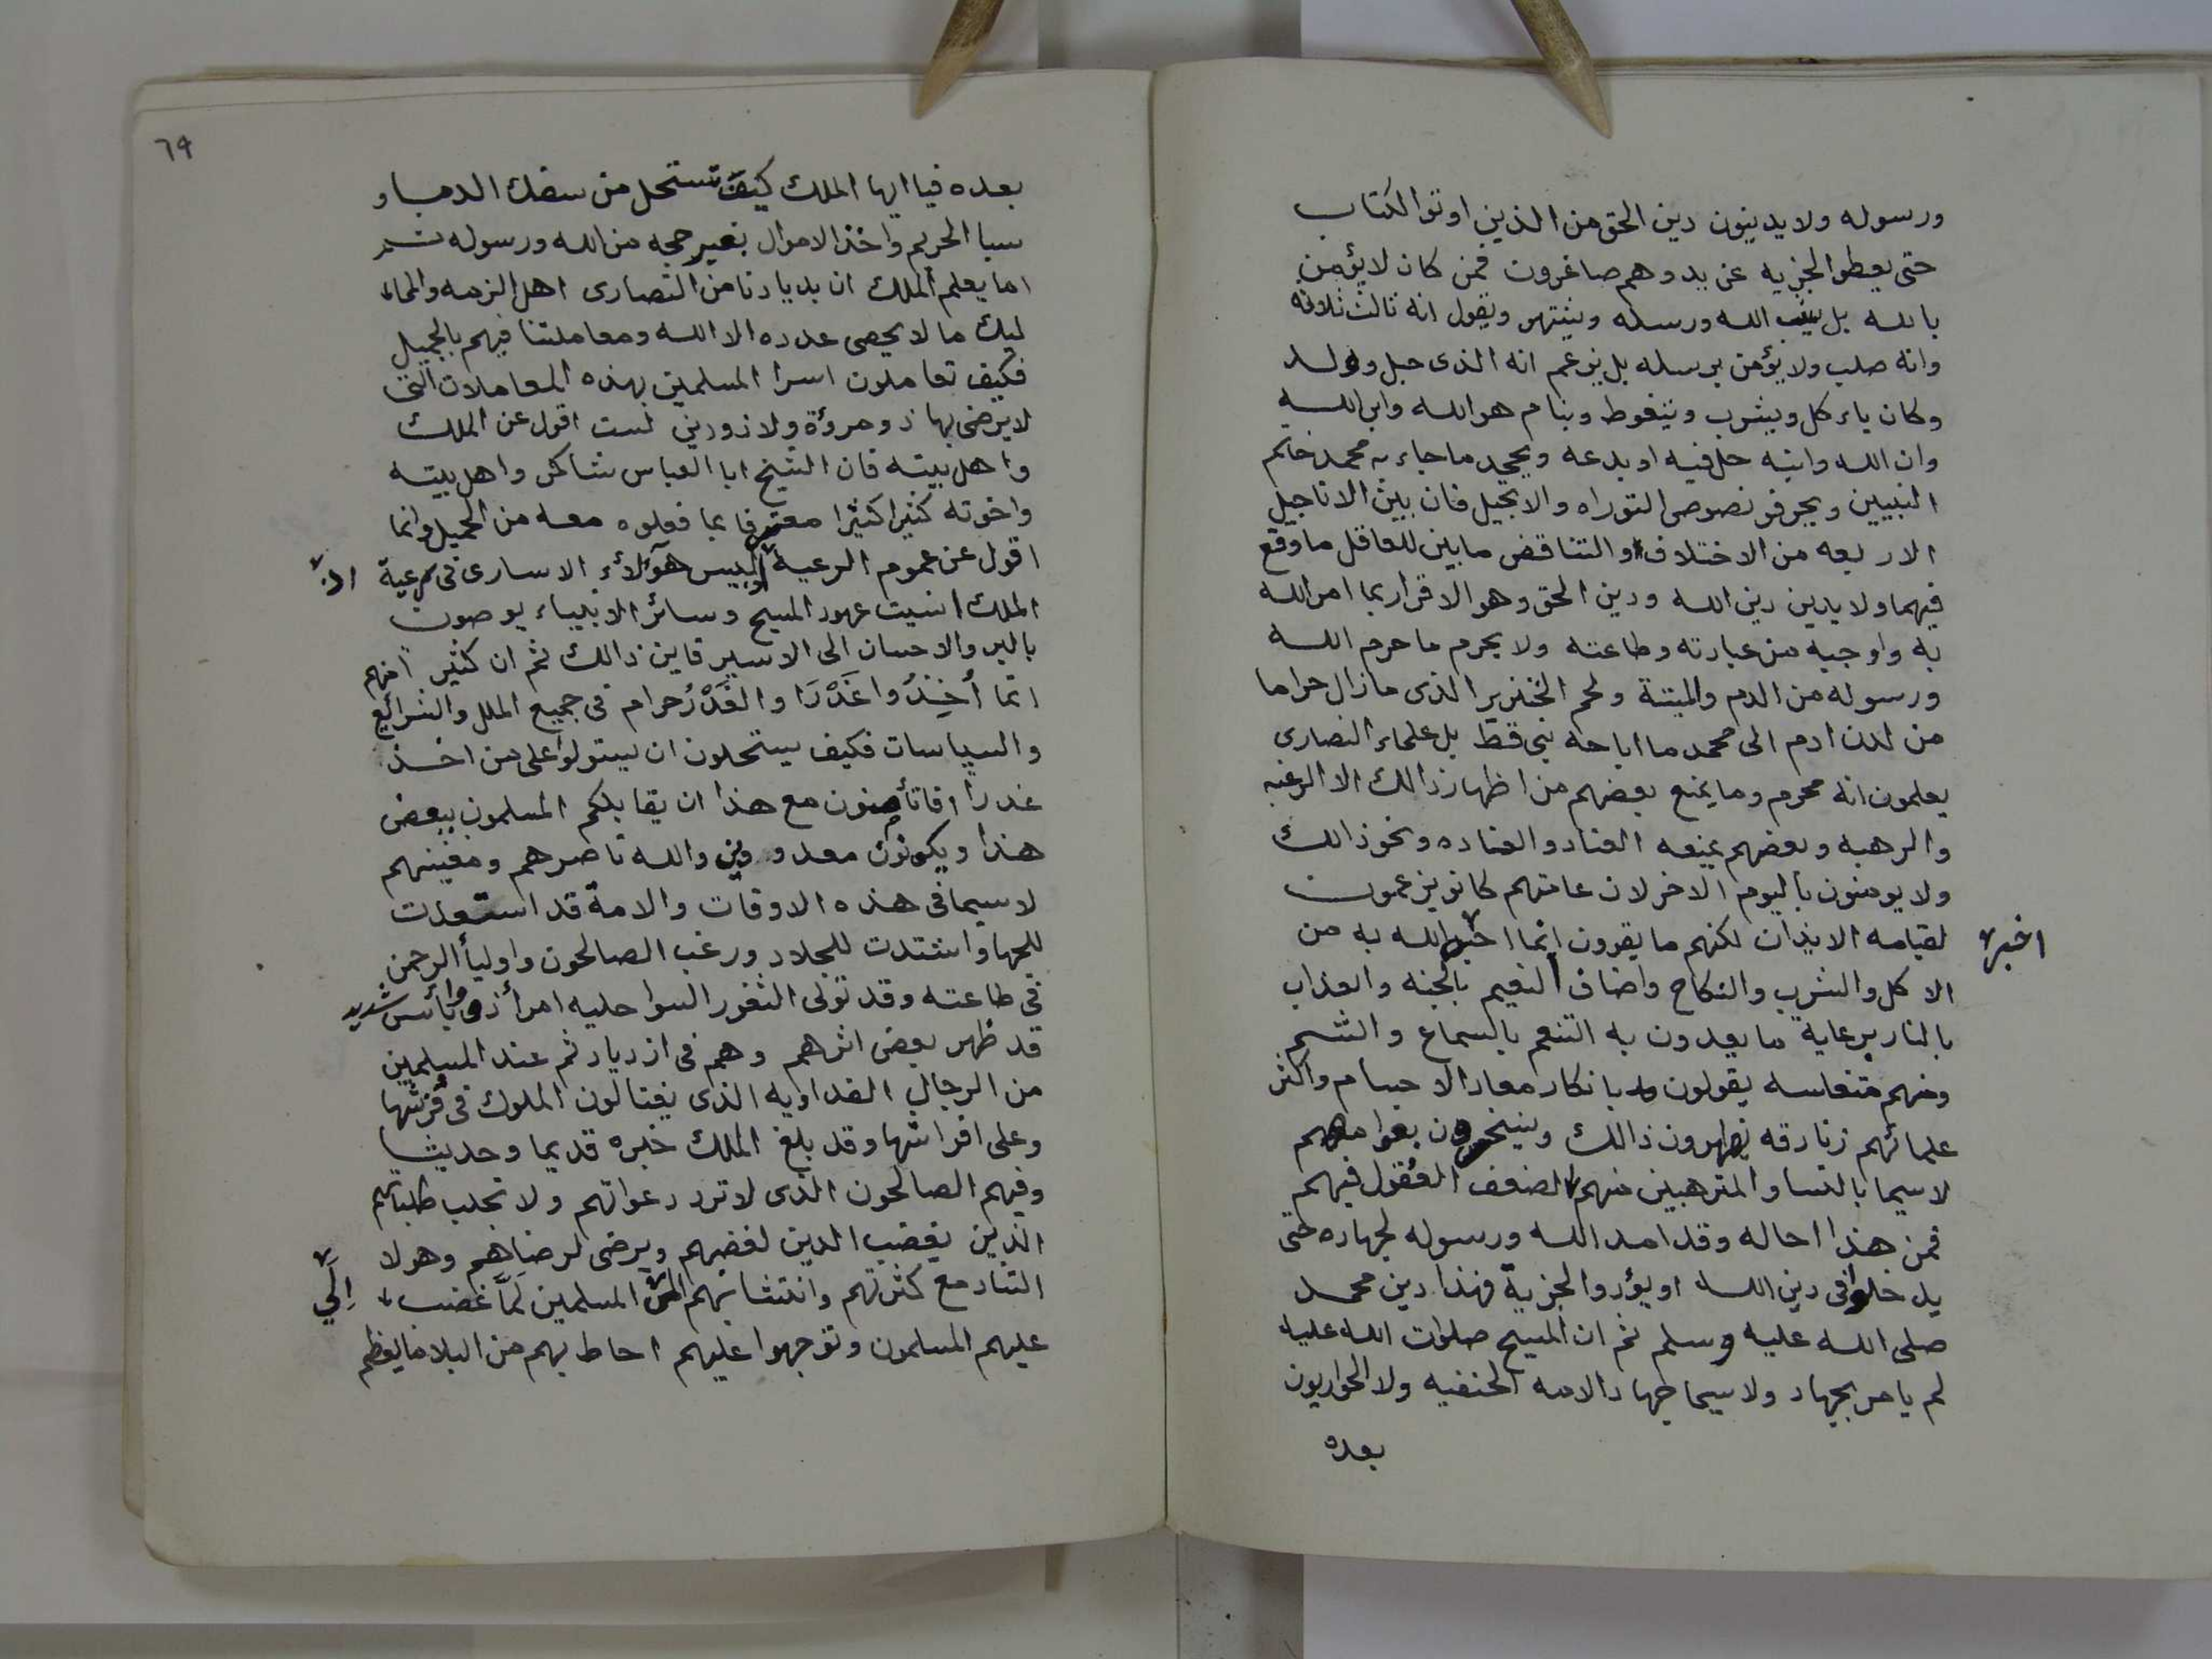 ورسوله ولا يدينون دين الحق من الذين اوتوا الكتاب
حتى يعطو الجزيه عن يد وهم صاغرون فمن كان لا يؤمن
بالله بل يسب الله ورسله ويقول انه ثالث ثلاثه
وانه صلب ولا يؤمن برسله بل يزعم انه الذى حبل وولد
وكان ياءكل ويشرب ويتغوط وينام هو الله وابن الله
وان الله وابنه حل فيه او بدعه ويجحد ما جاء به محمد خاتم
النبيين ويحرفو نصوص التوراه والانجيل فان بين الاناجيل
الاربعه من الاختلاف والتناقض ما بين للعاقل ما وقع
فيهما ولا يدين دين الله ودين الحق وهو الاقرار بما امر الله
به واوجبه من عبادته وطاعته ولا يحرم ما حرم الله
ورسوله من الدم والميتة ولحم الخنزير الذى مازال حراما
من لدن ادم الى محمد ما اباحه نبى قط بل علماء النصارى
يعلمون انه محرم وما يمنع بعضهم من اظهار ذالك الا الرغبه
والرهبه وبعضهم يمنعه العناد والعناده ونحو ذالك
ولا يومنون باليوم الاخر لان عامتهم كانو يزعمون
لقيامه الابذان لكنهم ما يقرون انما اخبر الله به من
اخبر
الاكل والشرب والنكاح واضاف النعيم بالجنه والعذاب
بالنار بل غاية ما يعدون به التنعم بالسماع والشم
ومنهم متفلسه يقولون بانكار معاد الاجسام واكثر
علمائهم زنادقه يضهرون ذالك ويسخرون بعوامهم
لاسيما بالنسا والمترهبين منهم لضعف العُقول فيهم
فمن هذا احاله وقد امد الله ورسوله لجهاده حتى
يدخلوا فى دين الله او يؤدوا الجزية فهذا دين محمد
صلى الله عليه وسلم ثم ان المسيح صلوات الله عليه
لم يامر بجهاد ولا سيما جهاد الامه الحنفيه ولا الحواريون
بعده
٦٩
بعده فيا ايها الملك كيف تستحل من سفك الدما و
سبا الحريم واخذ الاموال بغير حجه من الله ورسوله ثم
اما يعلم الملك ان بديارنا من النصارى اهل الزمه والمما
ليك ما لا يحصى عدده الا الله ومعاملتنا فيهم بالجميل
فكيف تعاملون اسرا المسلمين بهذه المعاملات التى
لا يرضى بها ذو مروؤة ولا ذو دين لست اقول عن الملك
واهل بيته فان الشيخ ابا العباس شاكر واهل بيته
واخوته كثيرا كثيرا معترفا بما فعلوه معه من الجميل وانما
اقول عن عموم الرعية اليس هؤلاء الاسارى فى رعية
الملك انسيت عهود المسيح وسائر الانبياء يوصون
بالبر والاحسان الى الاسير فاين ذالك ثم ان كثير امنهم
انما أُخِذُوا غَدْرَا والغَدْرُ حرام فى جميع الملل والشرائع
والسياسات فكيف يستحلون ان يستولوا على من اخذ
غدرا افاتأمنون مع هذا ان يقابلكم المسلمون ببعض
هذا ويكونون معدورين والله ناصرهم ومعينهم
لاسيما فى هذه الاوقات والامة قد استعدت
للجها واشتدت للجلاد ورغب الصالحون واوليأ الرحمن
فى طاعته وقد تولى الثغور السواحليه امرأ ذو بائس شديد
قد ظهر بعض اثرهم وهم فى ازدياد ثم عند المسلمين
من الرجال الفداويه الذى يغتالون الملوك فى فُرشها
وعلى افراشها وقد بلغ الملك خبره قديما وحديثا
وفيهم الصالحون الذى لا ترد دعواتهم ولا تخلب طلباتهم
الذين يغضب الدين لغضبهم ويرضى لرضاهم وهولا
التتار مع كثرتهم وانتشابهم الى المسلمين لَمَّا غضب
اِلَي
عليهم المسلمون وتوجهوا عليهم احاط بهم من البلا ما يعظم